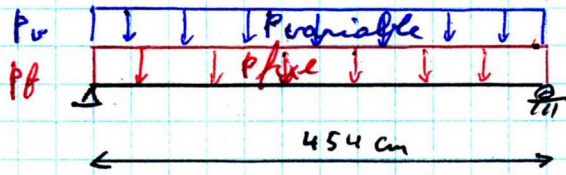 pv Pvariable
pf Pfixe
454 cm